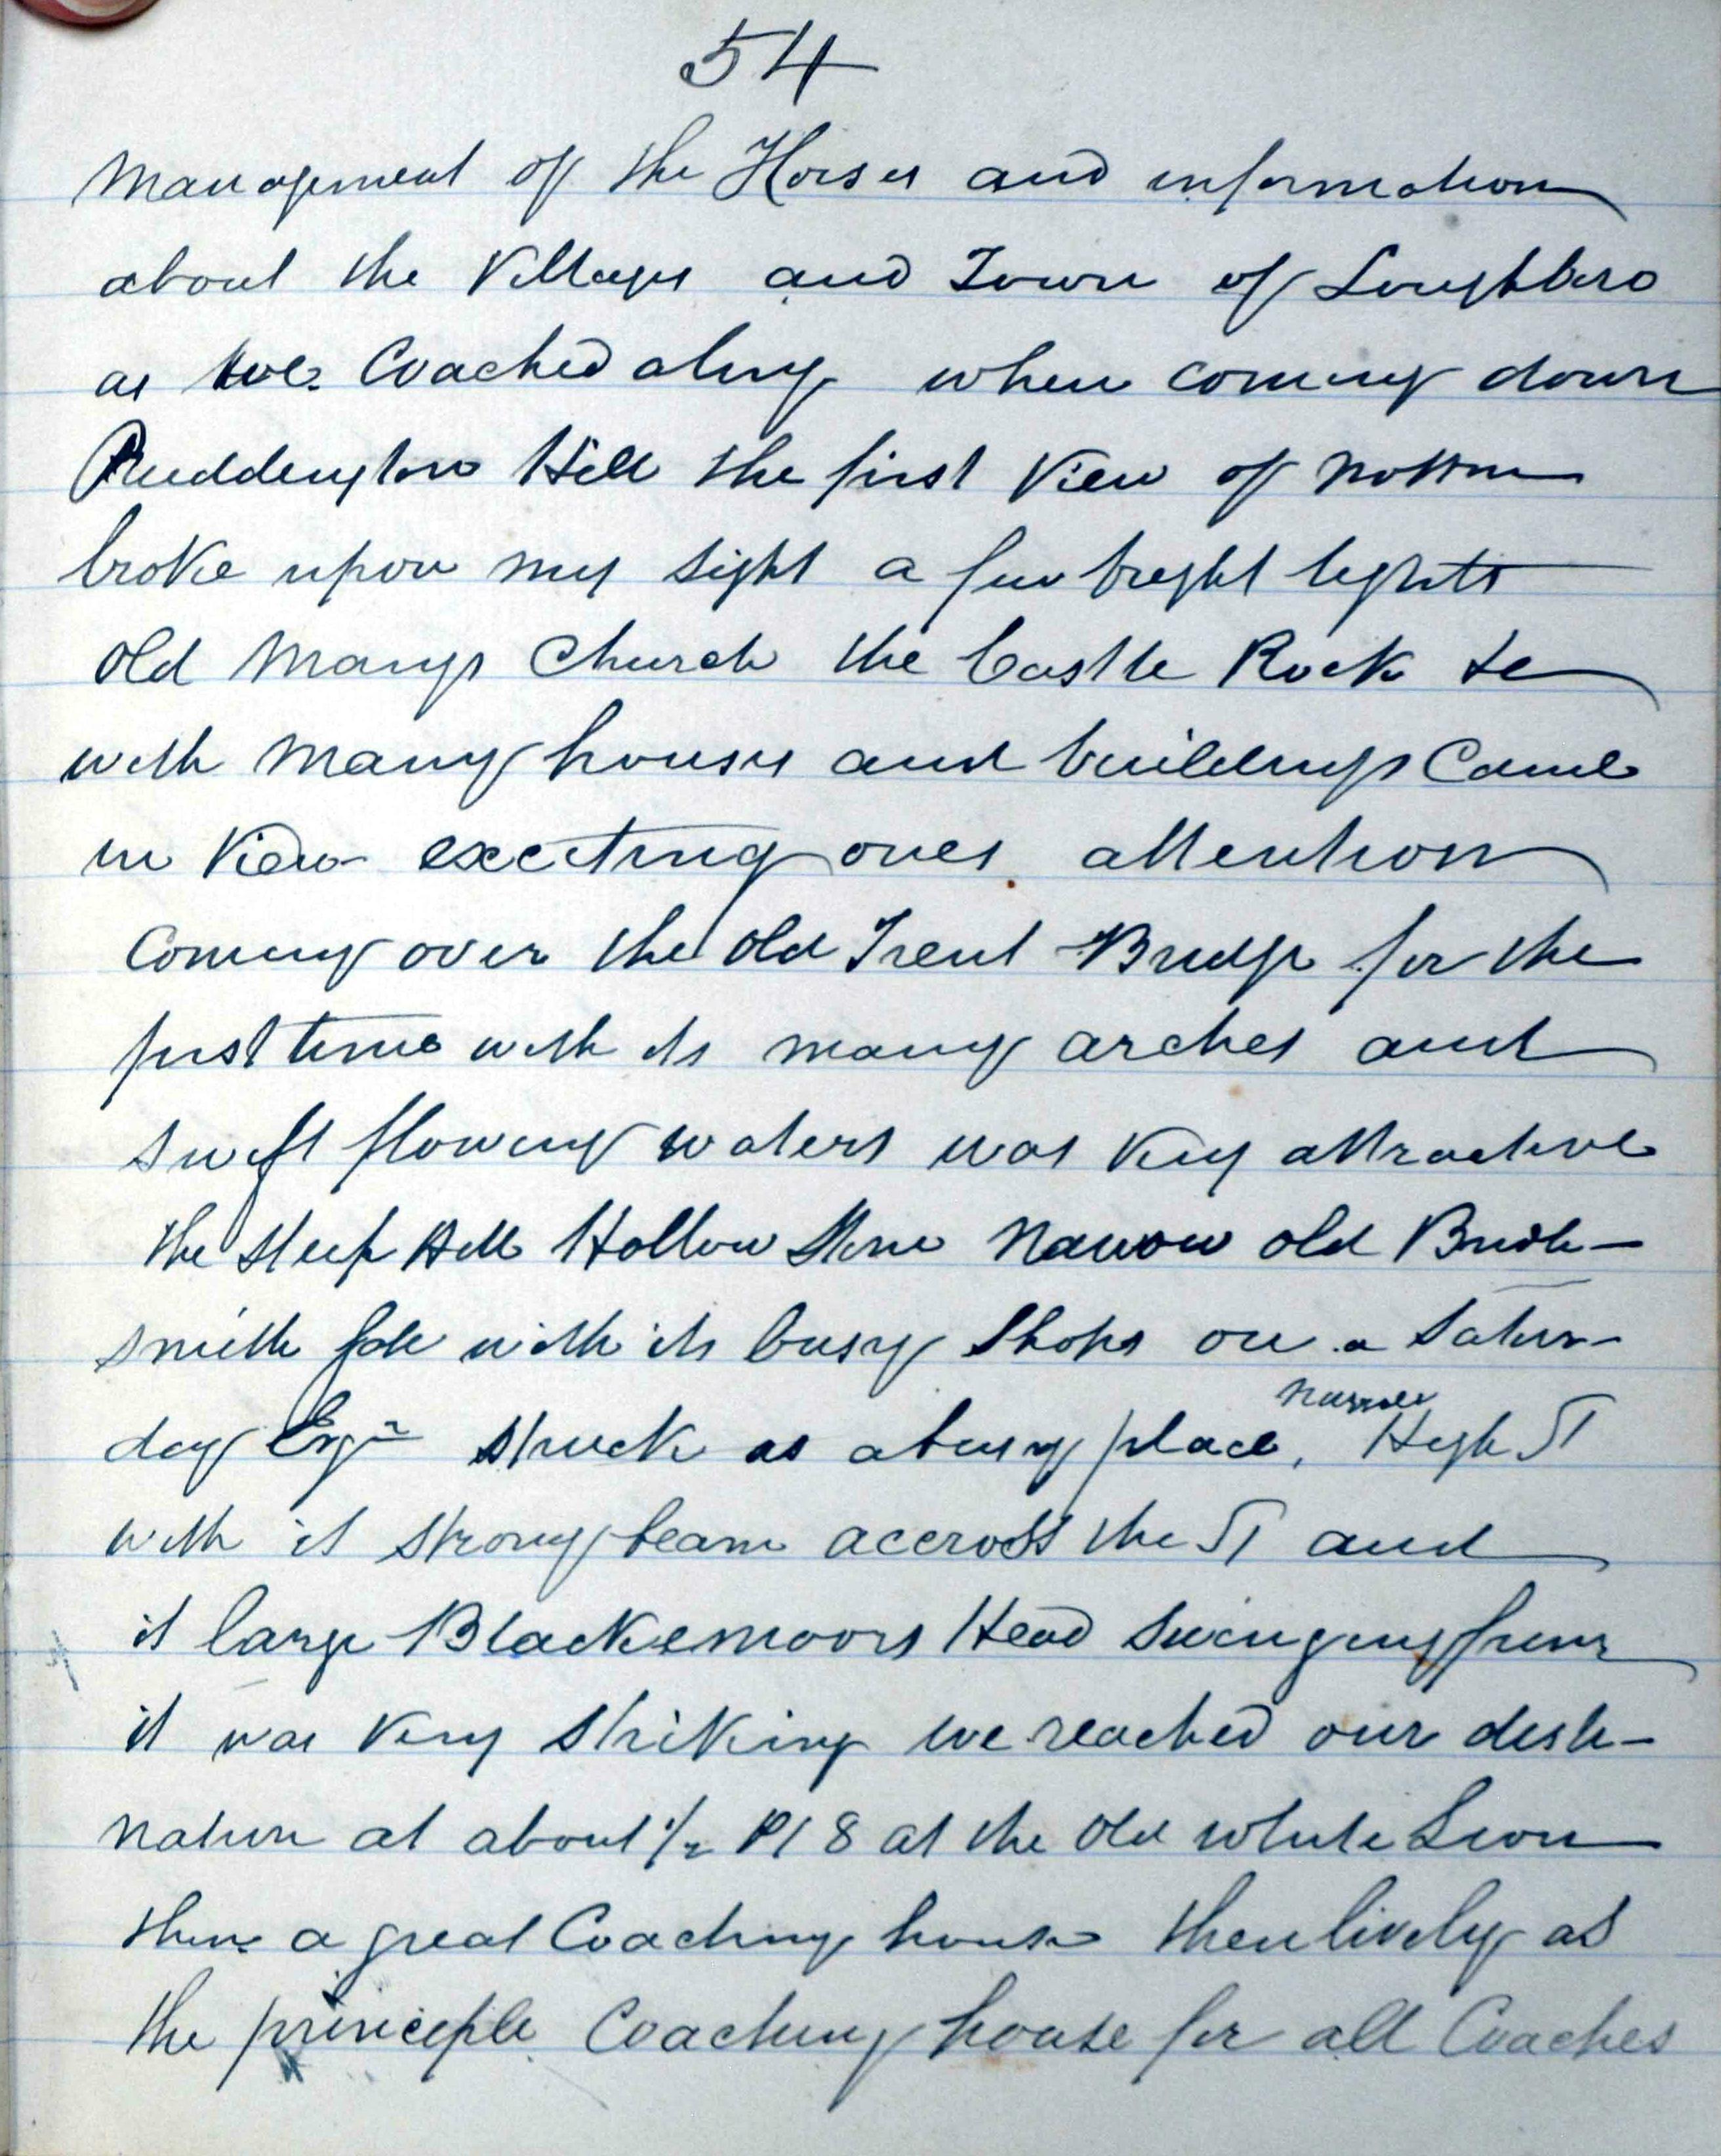 54
Management of the Horses and information
about the Villages and Town of Loughboro
as we Coached along when coming down
Ruddington Hill the first View of Nottm
broke upon my sight a few bright lights
old Marys Church the Castle Rock &c
with Many houses and buildings Came
in View exciting ones attention
Coming over the old Trent Bridge for the
first time with its many arches and
swift flowing waters was Very attractive
the steep Hill Hollow Stone Narrow old Bridle-
smith gate with its busy Shops on a Satur-
day Evg struck as a busy place, narrow High St
with it strong beam accross the St and
it large Blackemoors Head Swinging from
it was Very striking we reached our desti-
nation at about 1/2 pt 8 at the old white Lion
then a great Coaching house then lively as
the principle Coaching house for all Coaches